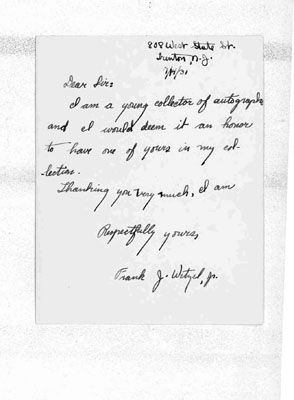 808 West State St.
Trenton, N.J.
7/14/31
Dear Sir:
I am a young collector of autographs
and I would deem it an honor
to have one of yours in my col-
lection.
Thanking you very much, I am
Respectfully yours,
Frank J. Wetzel, jr.